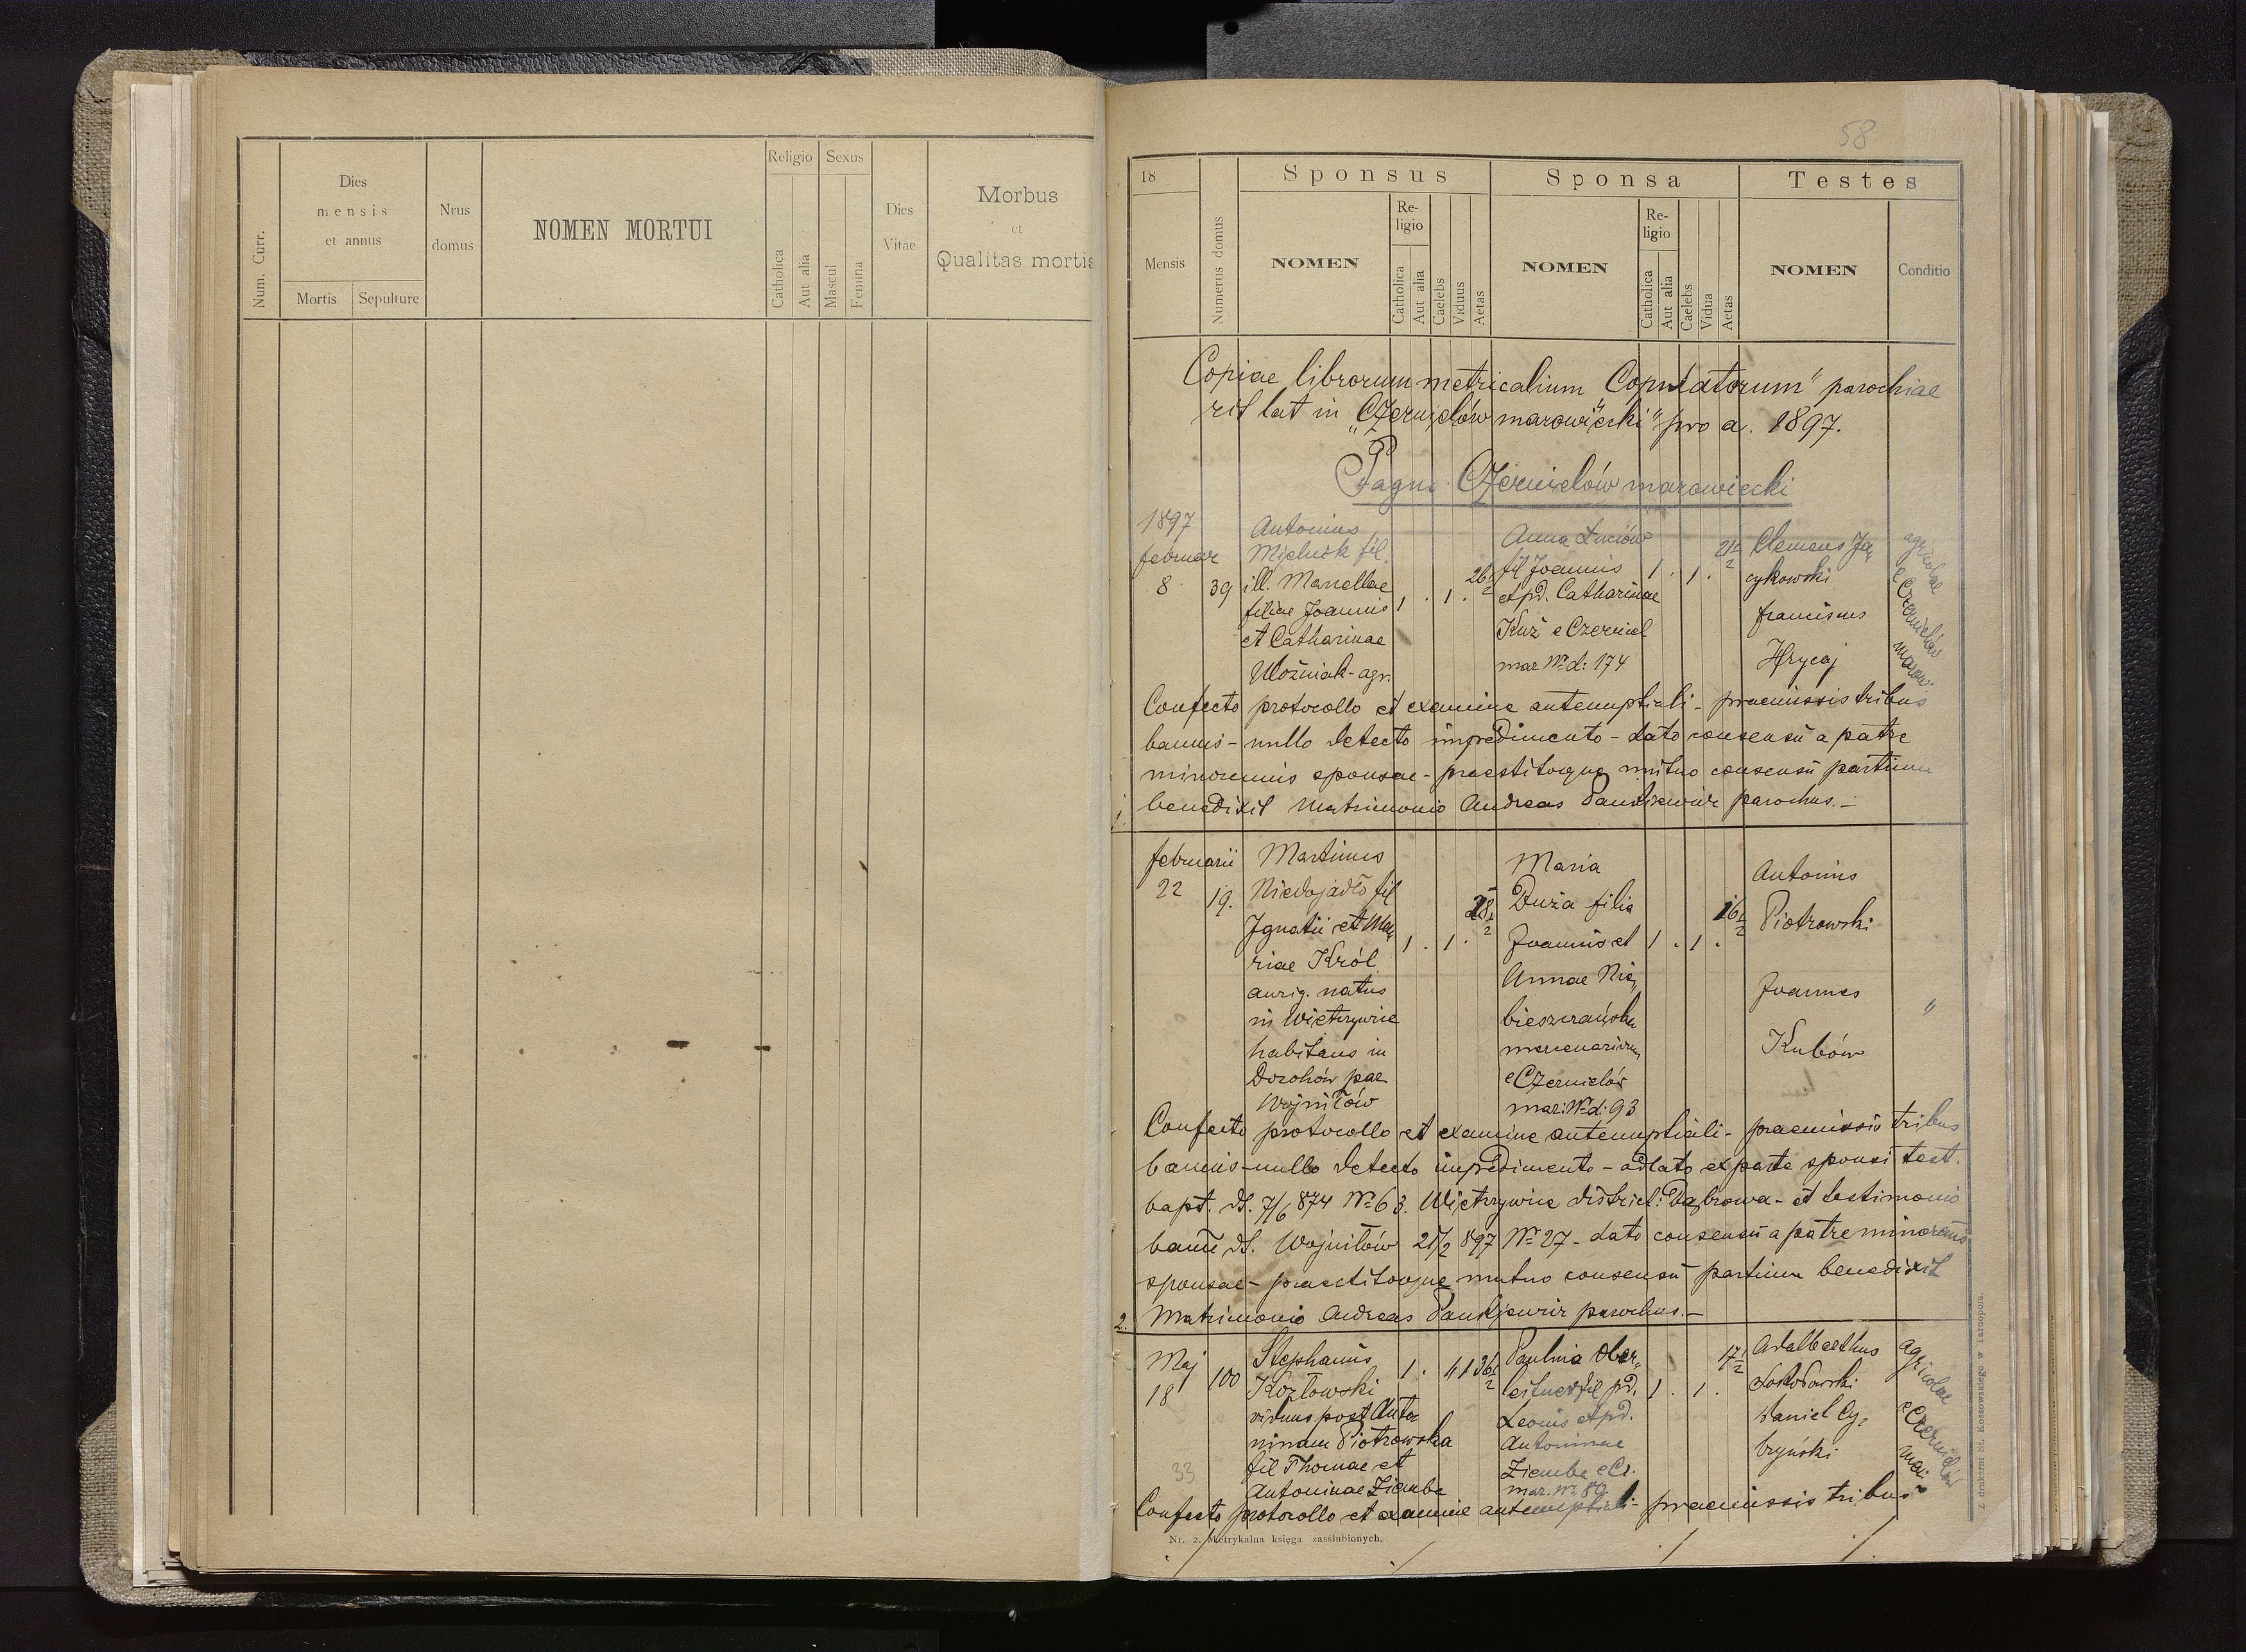 Num. Curr.
Dies
mensis
et annus
Mortis
Sepulture
Nrus
domus
NOMEN MORTUI
Religio
Catholica
Aut alia
Sexus
Mascul
Femina
Dies
Vitae
Morbus
et
Qualitas mortis
58
18
Mensis
Numerus domus
Sponsus
NOMEN
Re-
ligio
Catholica
Aut alia
Caelebs
Viduus
Aetas
Sponsa
NOMEN
Re-
ligio
Catholica
Aut alia
Caelebs
Vidua
Aetas
Testes
NOMEN
Conditio
Copiae librorum metricalium Copulatorum" parochiae
rit lat in „Czernielów mazowiecki" pro a. 1897.
Pagus Czernielów mazowiecki
1897
februar
8
39
Antonius
Mielnik fil.
ill. Marcellae
filiae Joannis
et Catharinae
Woźniak - agr.
1 . 1 .
26 1/2
Anna Łuciów
fil Joannis
et pd. Catharinae
Kuź e Czerniel
maz Nr d: 174
1 . 1 .
21 1/2
Clemens Ja„
cykowski
franciscus
Hrycaj
agricolae
e Czernielów
mazow.
Confecto protocollo et examine antenuptiali - praemissis tribus
bannis - nullo detecto impedimento - dato consensu a patre
minorennis sponsae - praestitoque mutuo consensu partium
1. benedixit matrimonio Andreas Pankiewicz parochus. -
februarii
22
19.
Martinus
Niedojadło fil
Ignatii et Ma„
riae Król
aurig. natus
in Wietrzywice
habitans in
Dorohów par
Wojniłów
1 . 1 .
28 1/2
Maria
Duża filia
Joannis et
Annae Nie„
bieszczańska
mercenariorum
e Czernielów
maz: Nr d: 93
1 . 1 .
16 1/2
Antonius
Piotrowski
Joannes
Kubów
"
Confecto protocollo et examine antenuptiali - praemissis tribus
bannis - nullo detecto impedimento - adlato ex parte sponsi test.
bapt. dt. 7/6 874 Nr 63. Wietrzywice district: Dąbrowa - et testimonio
bann dt. Wojniłów 21/2 897 Nr 27 - dato consensu a patre minorenis
sponsae - praestitoque mutuo consensu partium benedixit
2. Matrimonio Andreas Pankiewicz parochus. -
Maj
18
100
Stephanus
Kozłowski
viduus post Anto„
ninam Piotrowska
fil Thomae et
Antoninae Ziemba
1 . 1
36 1/2
Paulina Ober„
leitner fil pd.
Leonis et pd.
Antoninae
Ziemba e Cz.
maz. Nr 89
1 . 1 .
17 1/2
Adalberthus
Daniel Cy„
bryński
agricolae
e Czernielów
maz.
33
Confecto protocollo et examine antenuptiali - praemissis tribus
Nr. 2. Metrykalna księga zaślubionych.
Z drukarni St. Kossowskiego w Tarnopolu.